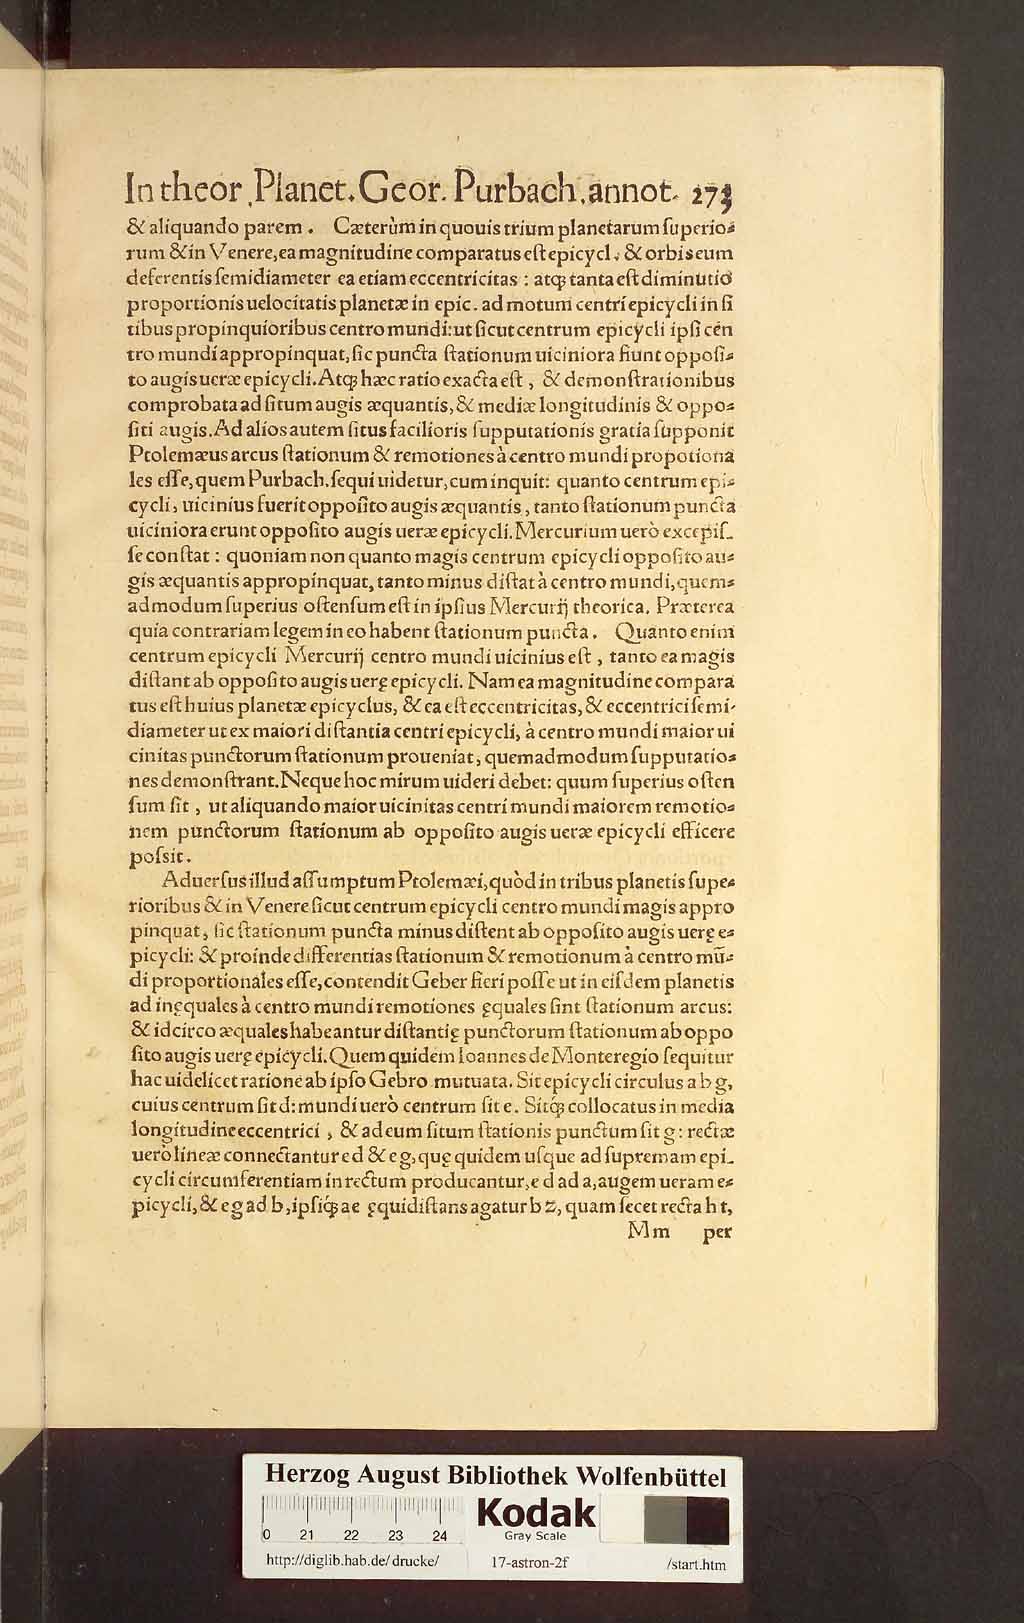 In theor. Planet. Geor. Purbach. annot. 273
& aliquando parem. Cæterùm in quouis trium planetarum ſuperio⸗
rum & in Venere, ea magnitudine comparatus eſt epicycl. & orbis eum
deferentis ſemidiameter ea etiam eccentricitas: atq; tanta eſt diminutio
proportionis uelocitatis planetæ in epic. ad motum centri epicycli in ſi
tibus propinquioribus centro mundi: ut ſicut centrum epicycli ipſi cen
tro mundi appropinquat, ſic puncta ſtationum uiciniora fiunt oppoſi⸗
to augis ueræ epicycli. Atq; hæc ratio exacta eſt, & demonſtrationibus
comprobata ad ſitum augis æquantis, & mediæ longitudinis & oppo⸗
ſiti augis. Ad alios autem ſitus facilioris ſupputationis gratia ſupponit
Ptolemæus arcus ſtationum & remotiones à centro mundi propotiona
les eſſe, quem Purbach. ſequi uidetur, cum inquit: quanto centrum epi⸗
cycli, uicinius fuerit oppoſito augis æquantis, tanto ſtationum puncta
uiciniora erunt oppoſito augis ueræ epicycli. Mercurium uerò excepiſ-
ſe conſtat: quoniam non quanto magis centrum epicycli oppoſito au⸗
gis æquantis appropinquat, tanto minus diſtat à centro mundi, quem⸗
admodum ſuperius oſtenſum eſt in ipſius Mercurij theorica. Præterea
quia contrariam legem in eo habent ſtationum puncta. Quanto enim
centrum epicycli Mercurij centro mundi uicinius eſt, tanto ea magis
diſtant ab oppoſito augis uerę epicycli. Nam ea magnitudine compara
tus eſt huius planetæ epicyclus, & ea eſt eccentricitas, & eccentrici ſemi-
diameter ut ex maiori diſtantia centri epicycli, à centro mundi maior ui
cinitas punctorum ſtationum proueniat, quemadmodum ſupputatio⸗
nes demonſtrant. Neque hoc mirum uideri debet: quum ſuperius oſten
ſum ſit, ut aliquando maior uicinitas centri mundi maiorem remotio⸗
nem punctorum ſtationum ab oppoſito augis ueræ epicycli efficere
poſsit.
Aduerſus illud aſſumptum Ptolemæi, quòd in tribus planetis ſupe⸗
rioribus & in Venere ſicut centrum epicycli centro mundi magis appro
pinquat, ſic ſtationum puncta minus diſtent ab oppoſito augis uerę e⸗
picycli: & proinde differentias ſtationum & remotionum à centro mū⸗
di proportionales eſſe, contendit Geber fieri poſſe ut in eiſdem planetis
ad inęquales à centro mundi remotiones ęquales ſint ſtationum arcus:
& idcirco æquales habeantur diſtantię punctorum ſtationum ab oppo
ſito augis uerę epicycli. Quem quidem Ioannes de Monteregio ſequitur
hac uidelicet ratione ab ipſo Gebro mutuata. Sit epicycli circulus a b g,
cuius centrum ſit d: mundi uerò centrum ſit e. Sitq́; collocatus in media
longitudine eccentrici, & ad eum ſitum ſtationis punctum ſit g: rectæ
uerò lineæ connectantur e d & e g, quę quidem uſque ad ſupremam epi-
cycli circumferentiam in rectum producantur, e d ad a, augem ueram e⸗
picycli, & e g ad b, ipſiq́; a e ęquidiſtans agatur b z, quam ſecet recta h t,
Mm per
Herzog August Bibliothek Wolfenbüttel
Kodak
Gray Scale
0 21 22 23 24
http://diglib.hab.de/drucke/ 17-astron-2f /start.htm